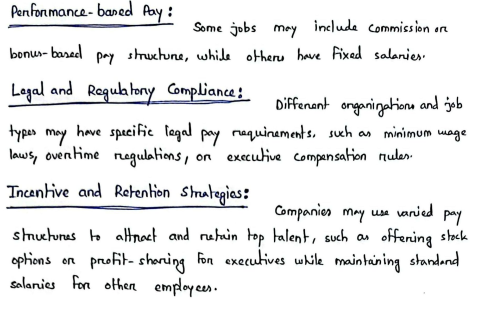 Performance-based Pay:
Some jobs may include commission or
bonus-based pay structure, while others have fixed salaries.
Legal and Regulatory Compliance:
Different organizations and job
types may have specific legal pay requirements, such as minimum wage
laws, overtime regulations, or executive compensation rules.
Incentive and Retention Strategies:
Companies may use varied pay
structures to attract and retain top talent, such as offering stock
options or profit-sharing for executives while maintaining standard
salaries for other employees.